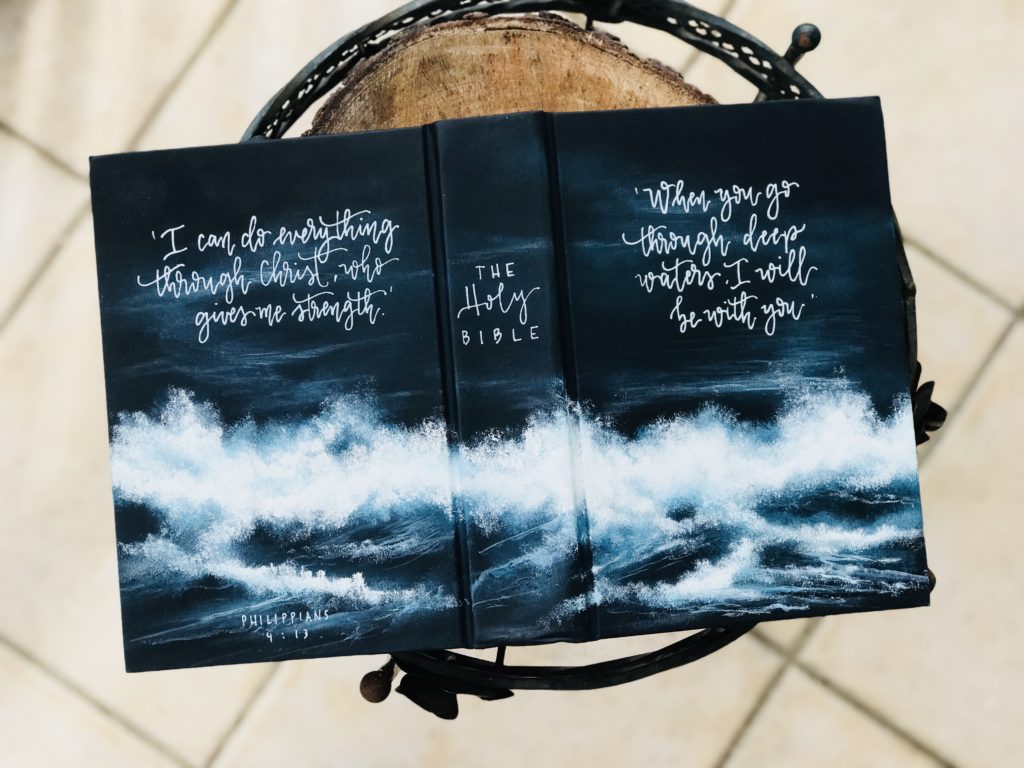 'I can do everything
through Christ, who
gives me strength.'
PHILIPPIANS
4:13
THE
Holy
BIBLE
'When you go
through deep
waters, I will
be with you'